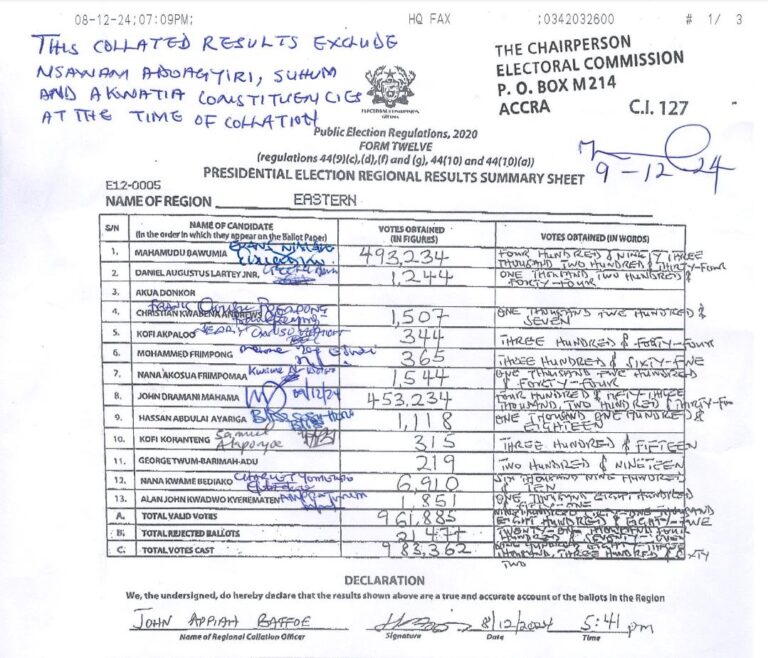 08-12-24;07:09PM; HQ FAX ;0342032600 # 1/ 3
THIS COLLATED RESULTS EXCLUDE
NSAWAM ADOAGYIRI, SUHUM
AND AKWATIA CONSTITUENCIES
AT THE TIME OF COLLATION
THE CHAIRPERSON
ELECTORAL COMMISSION
P. O. BOX M214
ACCRA C.I. 127
Public Election Regulations, 2020
FORM TWELVE
(regulations 44(9)(c),(d),(f) and (g), 44(10) and 44(10)(a))
PRESIDENTIAL ELECTION REGIONAL RESULTS SUMMARY SHEET
9-12-24
E12-0005
NAME OF REGION EASTERN
S/N NAME OF CANDIDATE (In the order in which they appear on the Ballot Paper) VOTES OBTAINED (IN FIGURES) VOTES OBTAINED (IN WORDS)
1. MAHAMUDU BAWUMIA 493,234 FOUR HUNDRED & NINETY THREE THOUSAND TWO HUNDRED & THIRTY-FOUR
2. DANIEL AUGUSTUS LARTEY JNR. 1,244 ONE THOUSAND TWO HUNDRED & FORTY-FOUR
3. AKUA DONKOR
4. CHRISTIAN KWABENA ANDREWS 1,507 ONE THOUSAND FIVE HUNDRED & SEVEN
5. KOFI AKPALOO 344 THREE HUNDRED & FORTY-FOUR
6. MOHAMMED FRIMPONG 365 THREE HUNDRED & SIXTY-FIVE
7. NANA AKOSUA FRIMPOMAA 1,544 ONE THOUSAND FIVE HUNDRED & FORTY-FOUR
8. JOHN DRAMANI MAHAMA 09/12/24 453,234 FOUR HUNDRED & FIFTY THREE THOUSAND, TWO HUNDRED & THIRTY-FOUR
9. HASSAN ABDULAI AYARIGA 1,118 ONE THOUSAND ONE HUNDRED & EIGHTEEN
10. KOFI KORANTENG Samuel 315 THREE HUNDRED & FIFTEEN
11. GEORGE TWUM-BARIMAH-ADU 219 TWO HUNDRED & NINETEEN
12. NANA KWAME BEDIAKO 6,910 SIX THOUSAND NINE HUNDRED & TEN
13. ALAN JOHN KWADWO KYEREMATEN 1,851 ONE THOUSAND EIGHT HUNDRED & FIFTY-ONE
A. TOTAL VALID VOTES 961,885 NINE HUNDRED & SIXTY-ONE THOUSAND EIGHT HUNDRED & EIGHTY-FIVE
B. TOTAL REJECTED BALLOTS 21,477 TWENTY-ONE THOUSAND FOUR HUNDRED & SEVENTY-SEVEN
C. TOTAL VOTES CAST 983,362 NINE HUNDRED & EIGHTY THREE THOUSAND, THREE HUNDRED & SIXTY TWO
DECLARATION
We, the undersigned, do hereby declare that the results shown above are a true and accurate account of the ballots in the Region
JOHN APPIAH BAFFOE 8/12/2024 5:41 pm
Name of Regional Collation Officer Signature Date Time